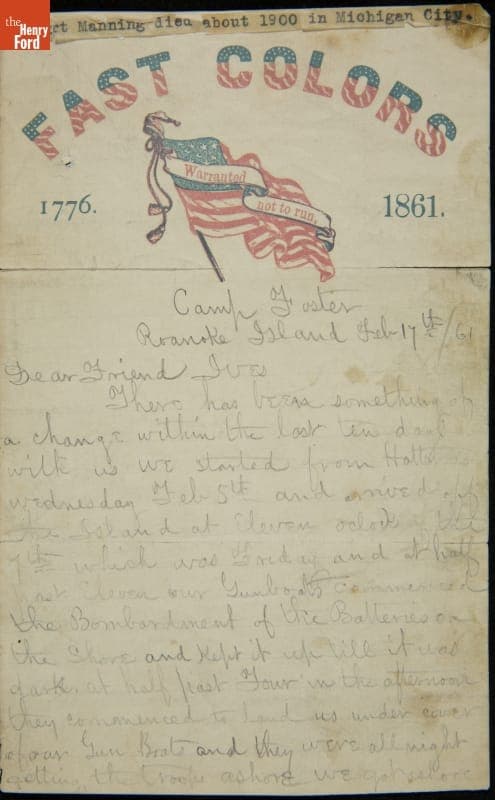 the Henry Ford
rt Manning died about 1900 in Michigan City.
FAST COLORS
Warranted
not to run.
1776.
1861.
Camp Foster
Roanoke Island Feb 17th/61
Dear Friend Ives
There has been something of
a change within the last ten days
with us we started from Hatt
wednesday Feb 5th and arived off
the Island at Eleven oclock the
7th which was Friday and at half
past Eleven our Gunboats commenced
the Bombardment of the Batteries on
the Shore and Kept it up till it was
dark at half past Four in the afternoon
they commenced to land us under cover
of our Gun Boats and they were all night
getting the troops ashore we got ashore